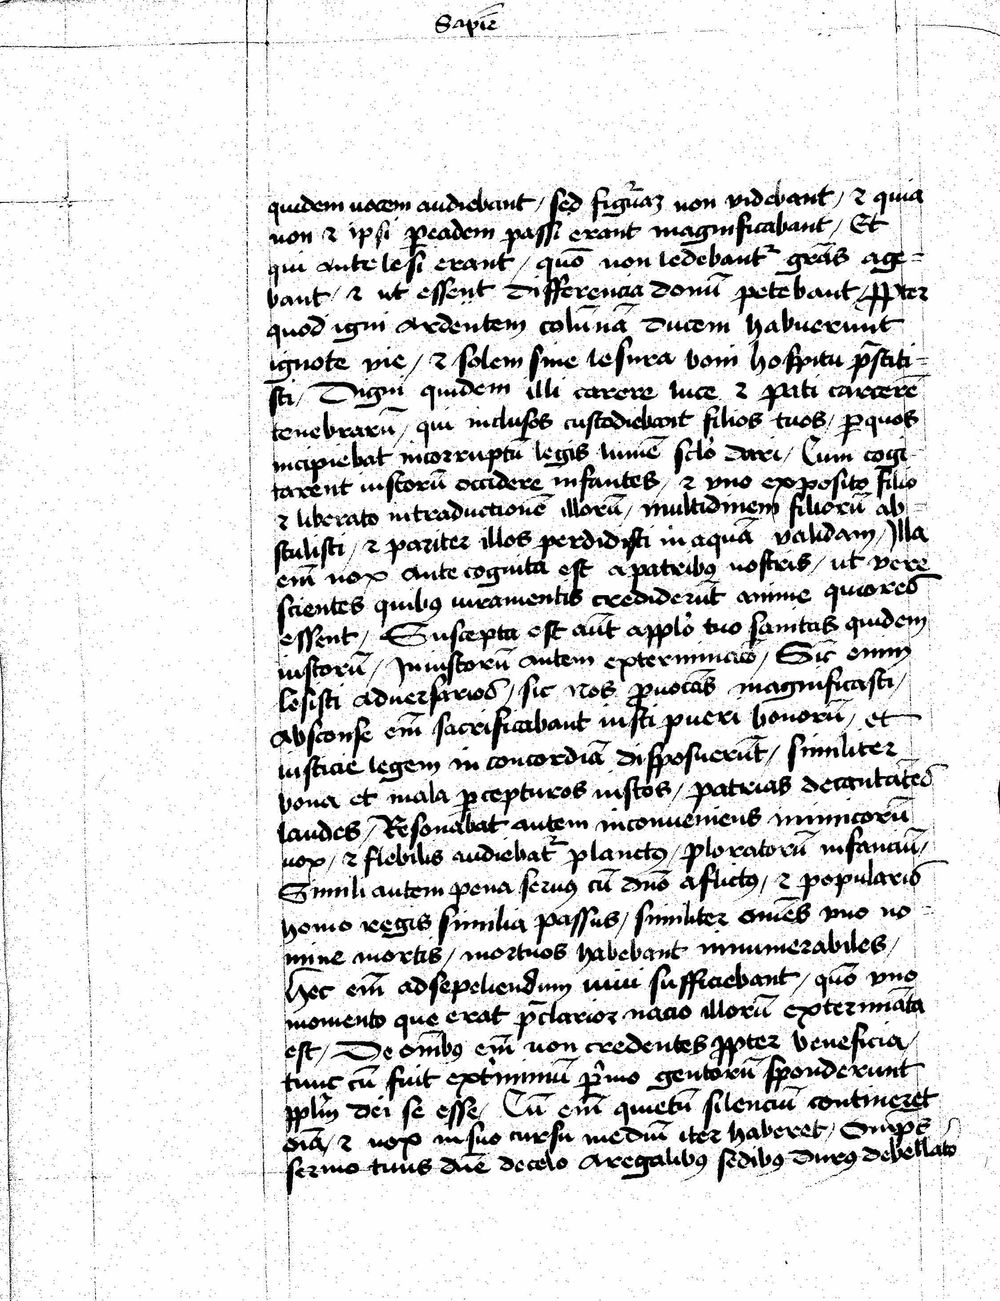 Sapiē
quidem uocem audiebant / sed figurā non videbant / ⁊ quia
non ⁊ ipsi p eadem passi erant magnificabant / Et
qui ante lesi erant / quō non ledebant᷑ grās age=
bant / ⁊ ut essent differencia donū petebant / ꝓpter
quod igni ardentem colūnā ducem habuerunt
ignote vie / ⁊ solem sine lesura boni hospitii p̄stiti=
sti / Digni quidem illi carere luce ⁊ pati carcerē
tenebrarū / qui inclusos custodiebant filios tuos / ꝑ quos
incipiebat incorruptū legis lumē sclo dari / Cum cogi=
tarent iustorū occidere infantes / ⁊ vno exposito filio
⁊ liberato in traductionē illorū / multidinem filiorū ab=
stulisti / ⁊ pariter illos perdidisti in aqua valida / Illa
em̄ nox ante cognita est a patribꝫ nostris / ut vere
scientes quibꝫ iuramentis crediderūt anime quiores
essent / Suscepta est aūt a pplo tuo sanitas quidem
iustorū / Iniustorū autem exterminacō / Sic enim
lesisti aduersarios / sic nos ꝓuocās magnificasti /
Absconse em̄ sacrificabant iusti pueri bonorū / et
iusticie legem in concordiā disposuerūt / similiter
bona et mala ꝑcepturos iustos / patrias decantātes
laudes / Resonabat autem inconueniens inimicorū
uox / ⁊ flebilis audiebat᷑ planctꝰ / ploratorū infanciū /
Simili autem pena seruꝰ cū dnō aflictꝰ / ⁊ popularis
homo regis similia passus / similiter omēs vno no=
mine mortis / mortuos habebant innumerabiles /
Nec em̄ ad sepeliendum uiui sufficiebant / quō vno
momento que erat p̄clarior nacio illorū extermīata
est / De omībꝫ em̄ non credentes ꝓpter beneficia /
tunc cū fuit ext'miniū p'mo genitorū sponderunt
pplm̄ dei se esse / Cū em̄ quietū silenciū contineret
oīa / ⁊ nox in suo cursu mediū iter haberet / Omīps
sermo tuus dn̄e de celo a regalibꝫ sedibꝫ durꝰ debellator